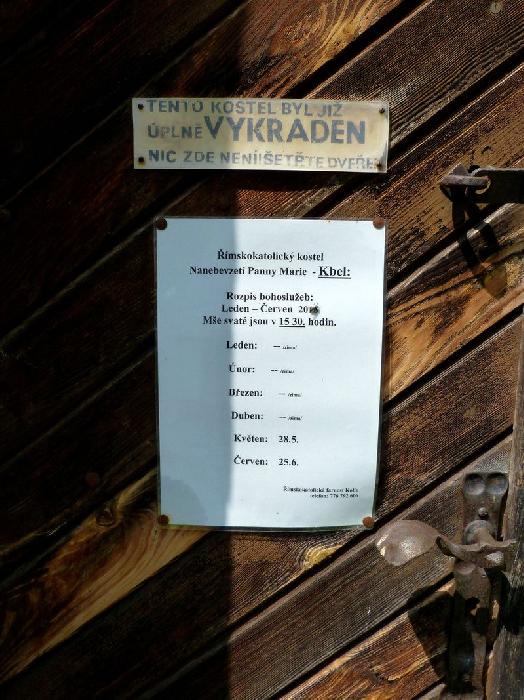 TENTO KOSTEL BYL JIŽ
ÚPLNĚ VYKRADEN
NIC ZDE NENÍ! ŠETŘTE DVEŘE
Římskokatolický kostel
Nanebevzetí Panny Marie - Kbel:
Rozpis bohoslužeb:
Leden – Červen
Mše svaté jsou v 15.30. hodin.
Leden: --- /zima/
Únor: --- /zima/
Březen: --- /zima/
Duben: --- /zima/
Květen: 28.5.
Červen: 25.6.
Římskokatolická farnost
telefon: